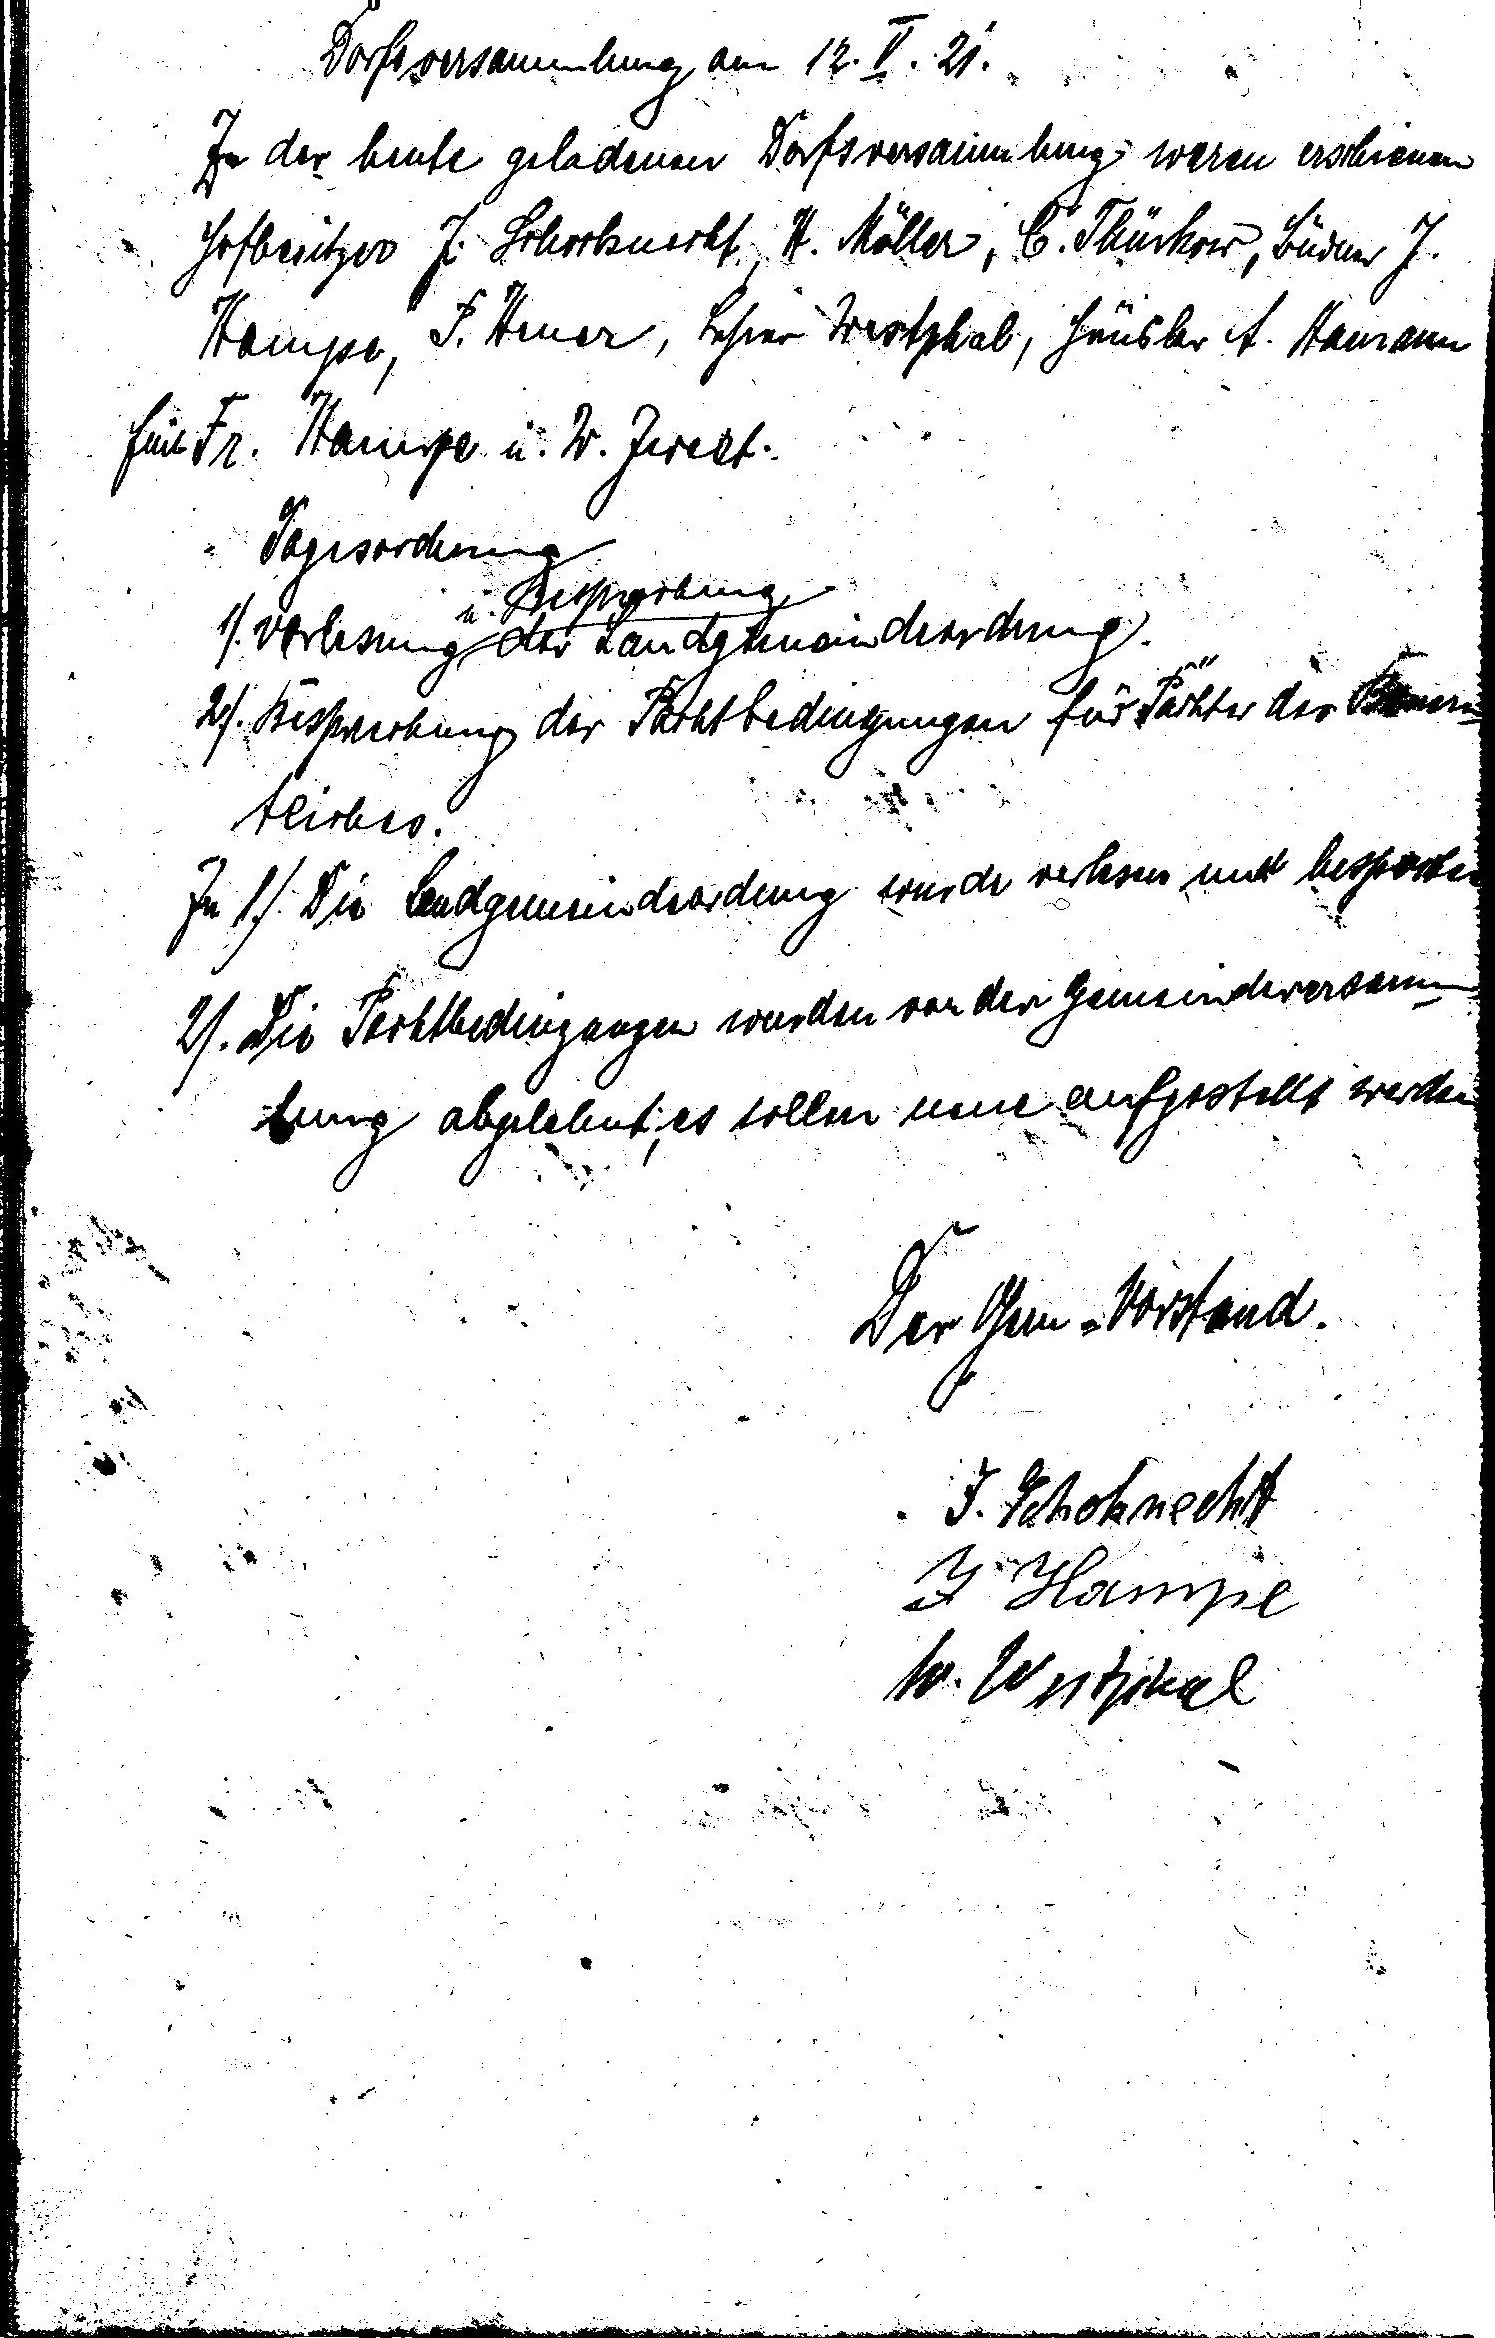 Dorfsversammlung am 12. V. 21.
In der heute geladenen Dorfsversammlung waren erschienen
Hofbesitzer J. Schocknecht, H. Möller, C. Thürkow, Büdner J.
Hampe, P. Heuer, Lehrer Westphal, Häusler A. Hamann
Fr. Hampe u. W.
Tagesordnung
u. Besprechung
1). Vorlesung der Landgemeindeordnung.
2). Besprechung der Pachtbedingungen für Pächter der
Zu 1.) Die Landgemeindeordnung wurde verlesen und besprochen
2). Die Pachtbedingungen wurden von der Gemeindeversamm-
lung abgelehnt, es sollen neue aufgestellt werden
Der Gem-Vorstand.
J. Schoknecht
J Hampe
W. Westphal